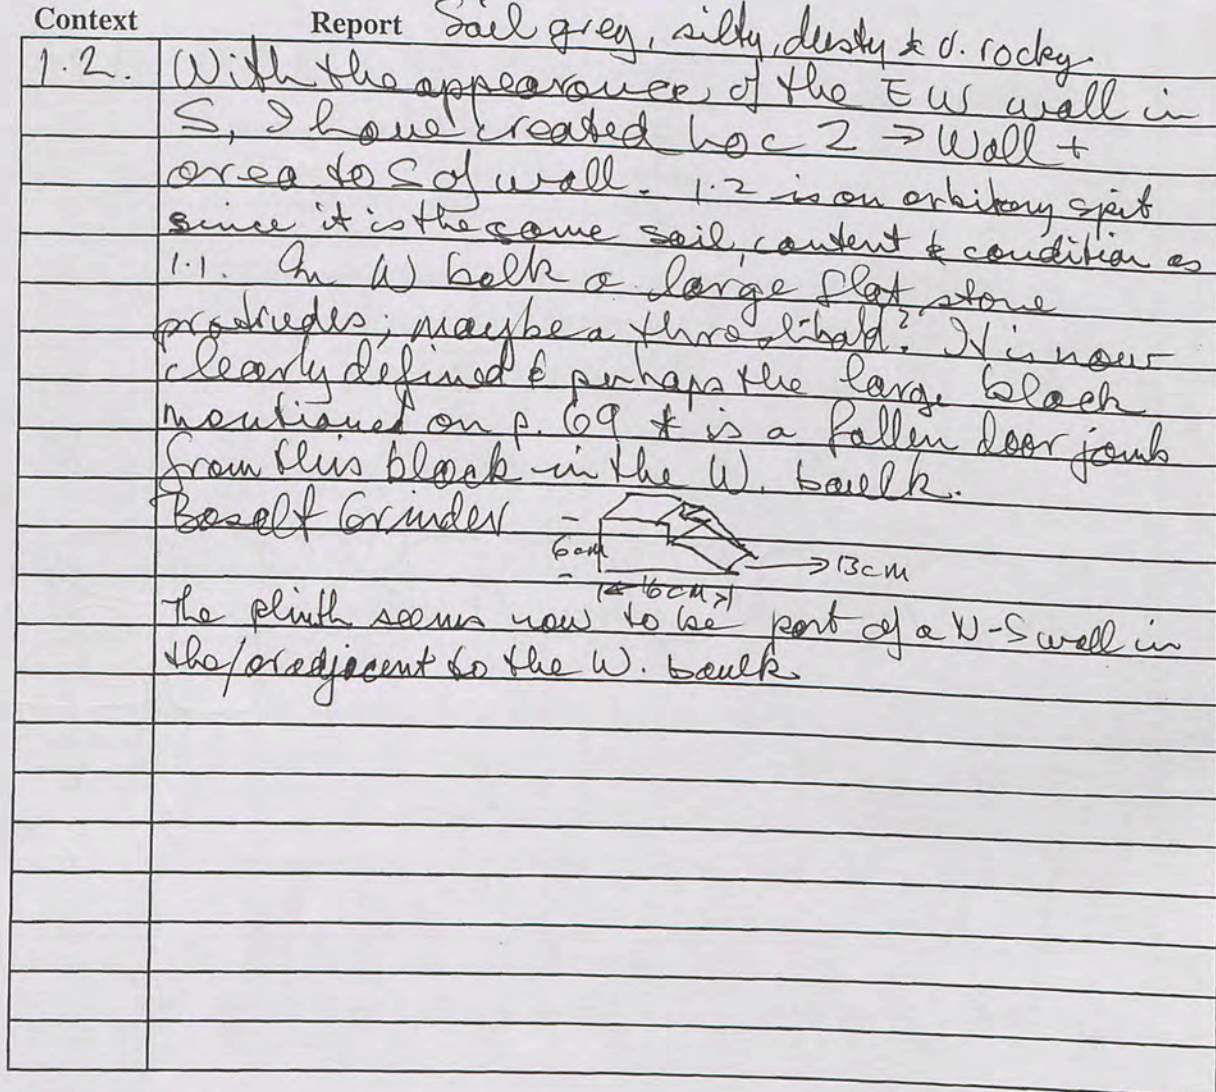 Context Report Soil grey, silty, dusty & v. rocky.
1.2. With the appearance of the EW wall in
S, I have created Loc 2 → Wall +
area to S of wall. 1.2 is an arbitary spit
since it is the same soil, content & condition as
1.1. In W balk a large flat stone
protrudes; maybe a threshhold? It is now
clearly defined & perhaps the large block
mentioned on p. 69 * is a fallen door jamb
from this block in the W. baulk.
Basalt Grinder
6cm
→ 13cm
16cm
The plinth seems now to be part of a N-S wall in
the/or adjacent to the W. baulk.